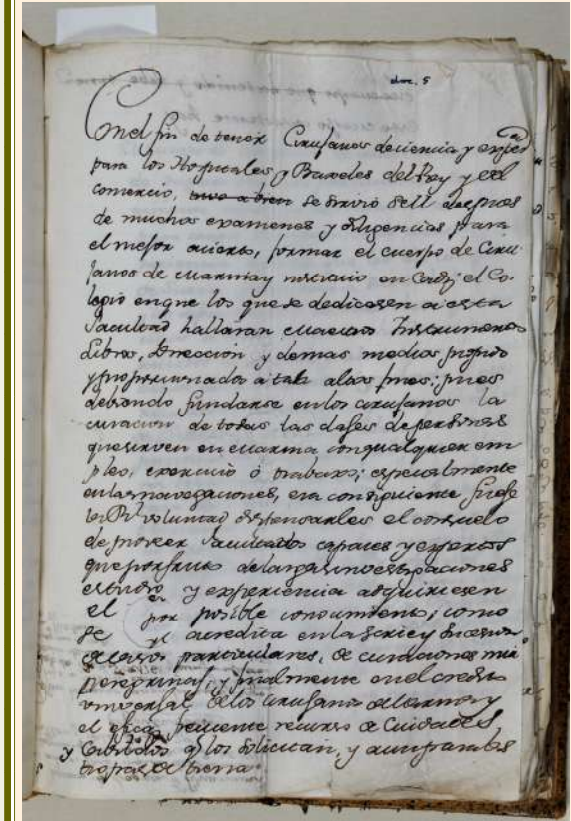 doc. 5
Con el fin de tener Cirujanos de ciencia y
para los Hospitales, y Baxeles del Rey y del
comercio, tuvo a bien se sirvió S.M. despues
de muchos examenes y diligencias para
el mejor acierto, formar el cuerpo de Ciru-
janos de Marina y instituir en Cadiz el Co-
legio en que los que se dedicasen a esta
facultad hallaran Maestros Instrumentos
Libros, Direccion y demas medios propios
y proporcionados a tales altos fines; pues
debiendo fundarse en los cirujanos la
curacion de todas las clases de personas
que sirven en Marina con qualquier em
pleo, exercicio ó trabaxo; especialmente
en las navegaciones, era consiguiente fuese
la Rl. voluntad dispensarles el consuelo
de proveer facultados capaces y expertos
que por fruto de largas investigaciones
estudio y experiencia adquiriesen
el por posible conocimiento; como
se acredita en la serie y sucesos
particulares, de curaciones mui
peregrinas, y finalmente en el credito
universal de los cirujanos de la Marina y
el recurso de Cuidades
y que los solicitan, y aun para las
tropas de tierra